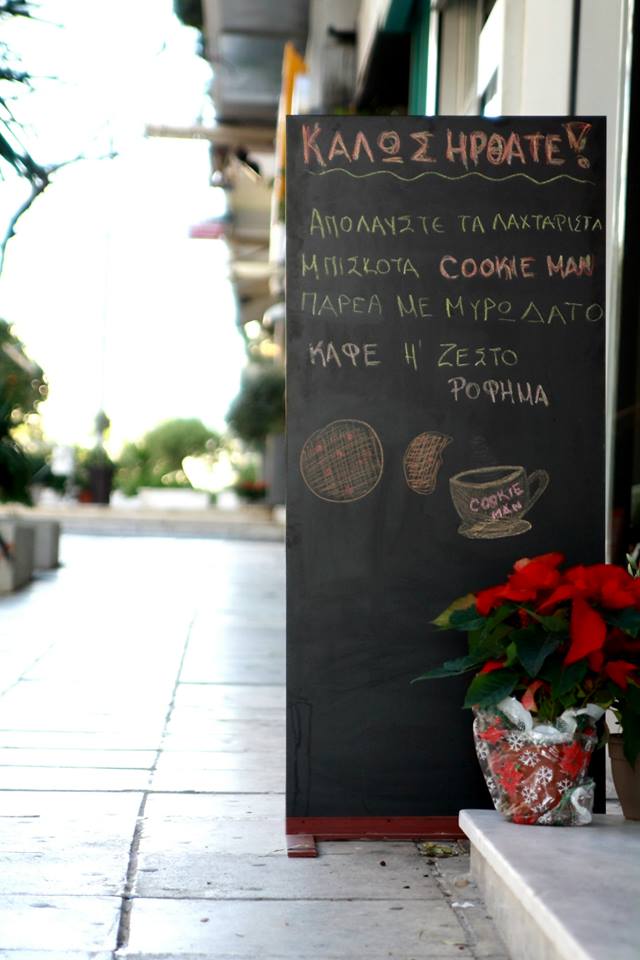 ΚΑΛΩΣ ΗΡΘΑΤΕ!
ΑΠΟΛΑΥΣΤΕ ΤΑ ΛΑΧΤΑΡΙΣΤΑ
ΜΠΙΣΚΟΤΑ COOKIE MAN
ΠΑΡΕΑ ΜΕ ΜΥΡΩΔΑΤΟ
ΚΑΦΕ Η' ΖΕΣΤΟ
ΡΟΦΗΜΑ
COOKIE
MAN